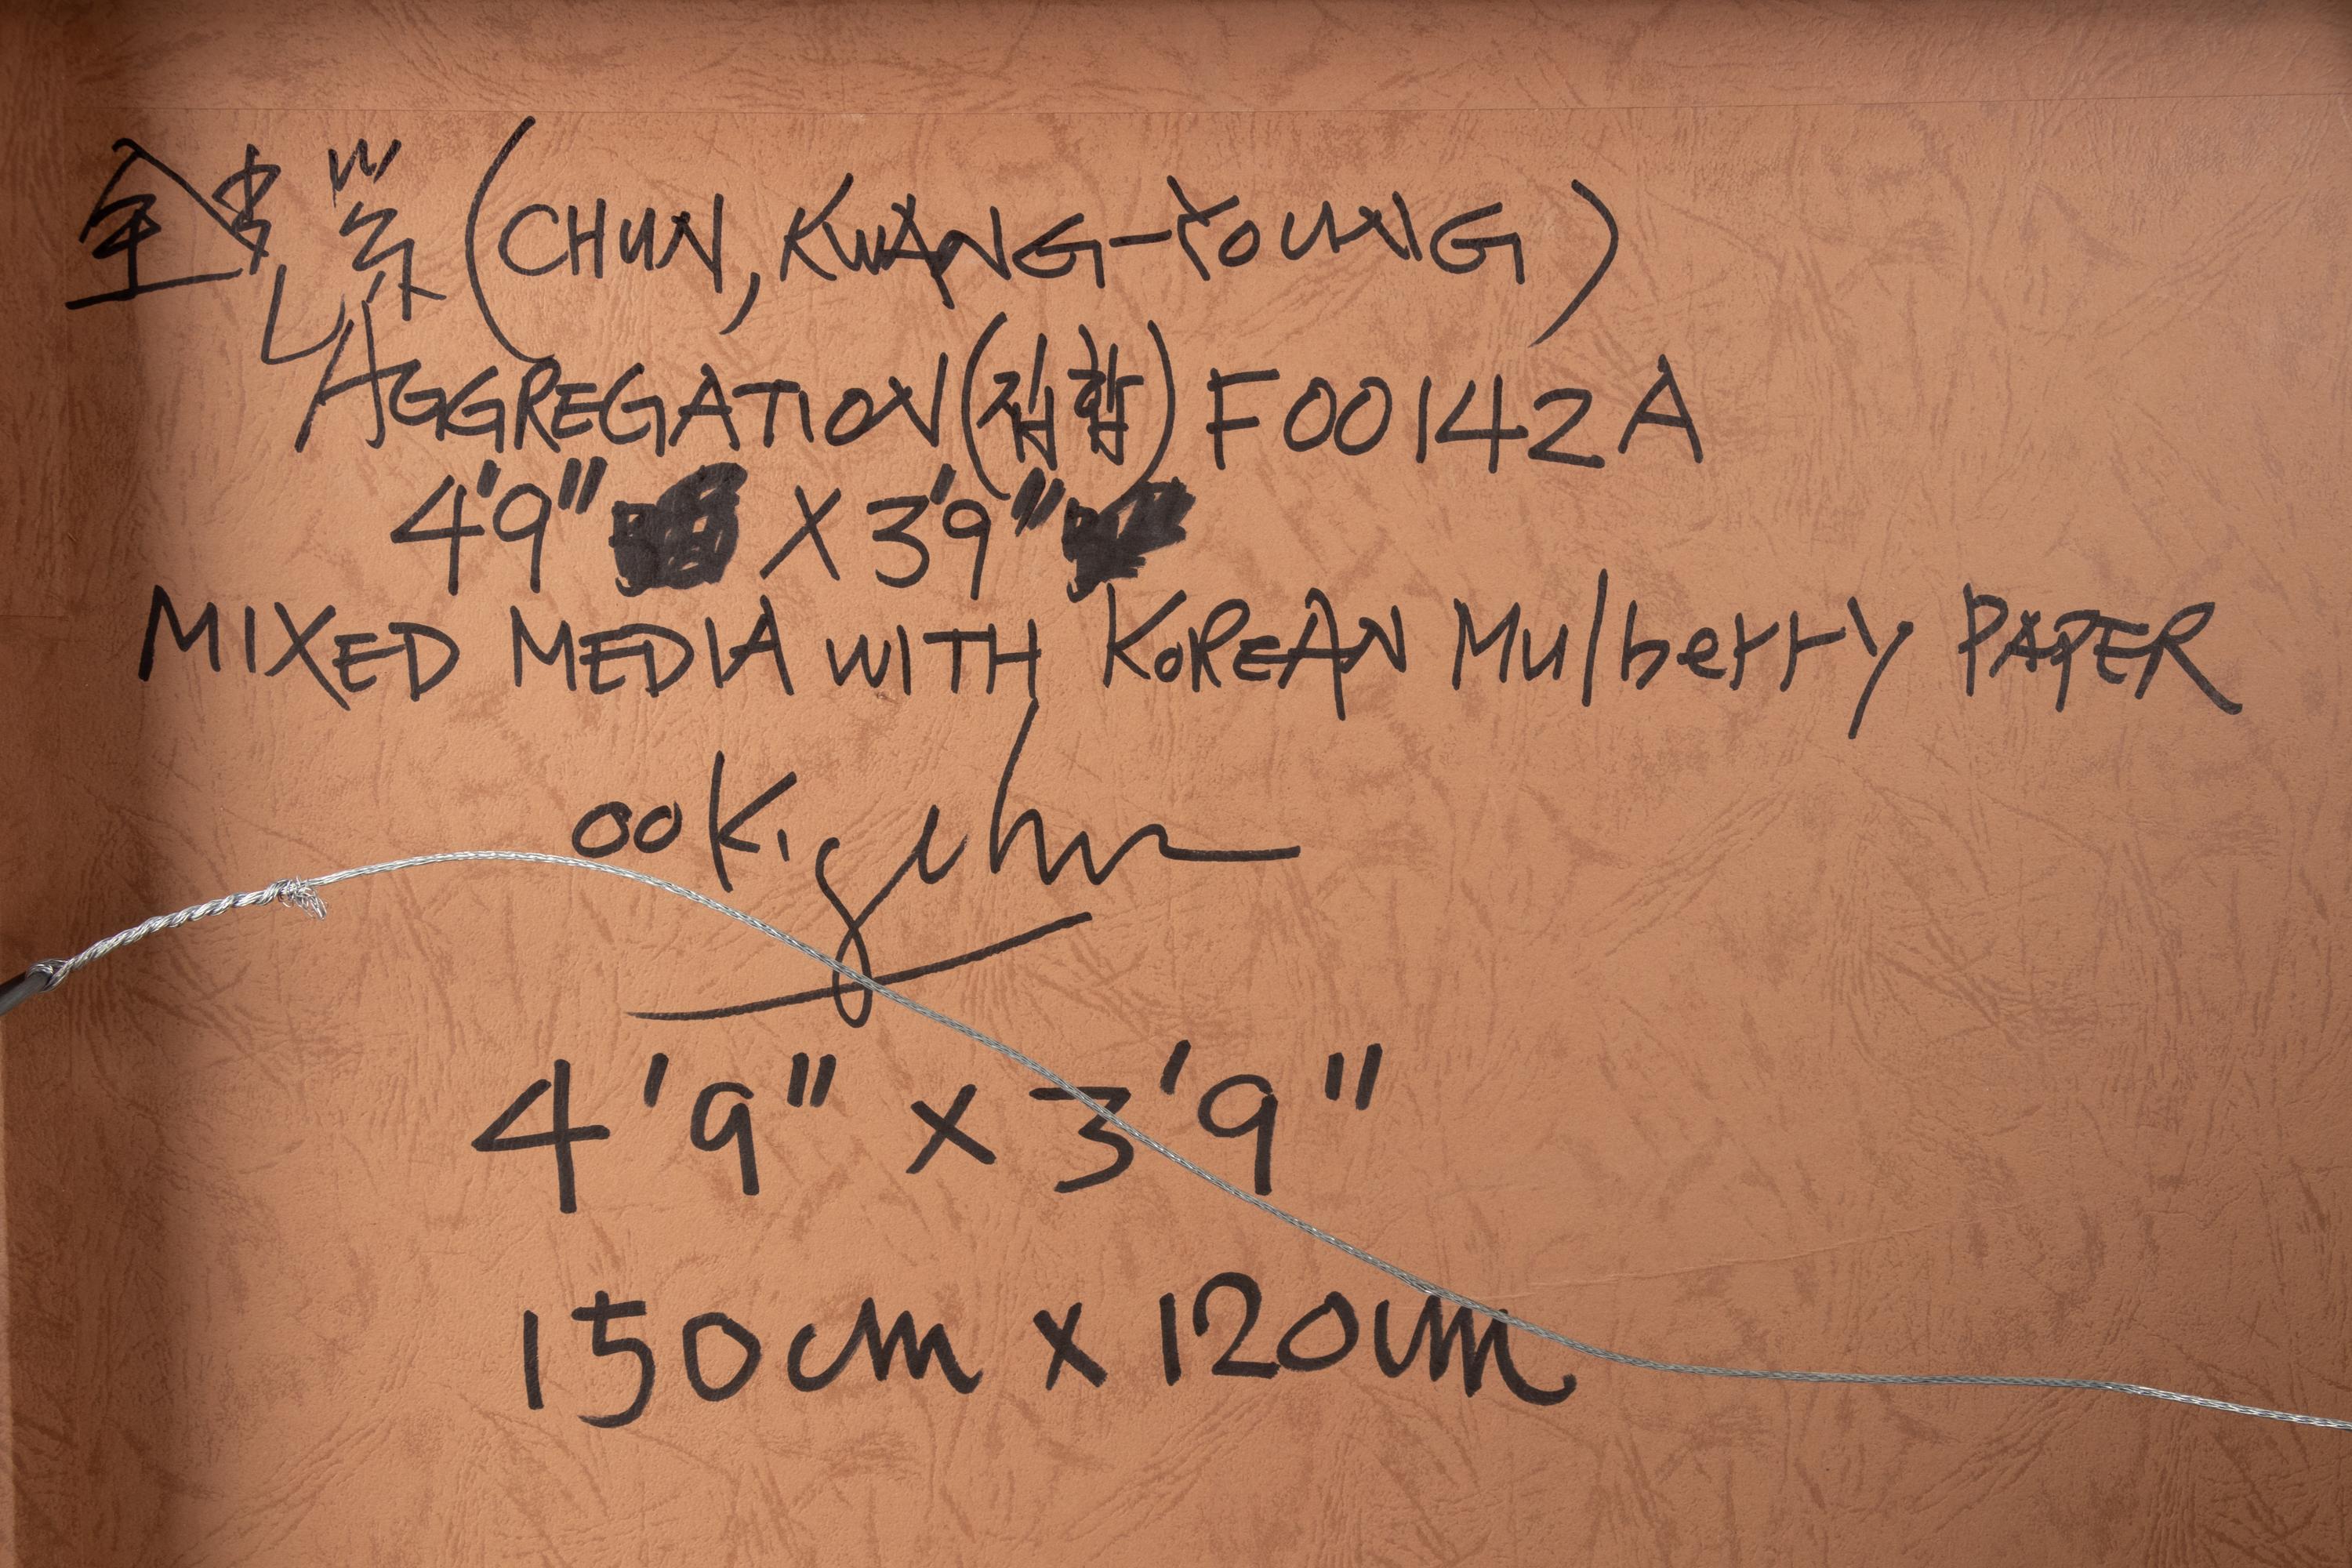 全光榮 (CHUN, KWANG-YOUNG)
AGGREGATION (집합) F00142A
4'9" X 3'9"
MIXED MEDIA WITH KOREAN Mulberry PAPER
00 K.
4'9" x 3'9"
150cm x 120cm